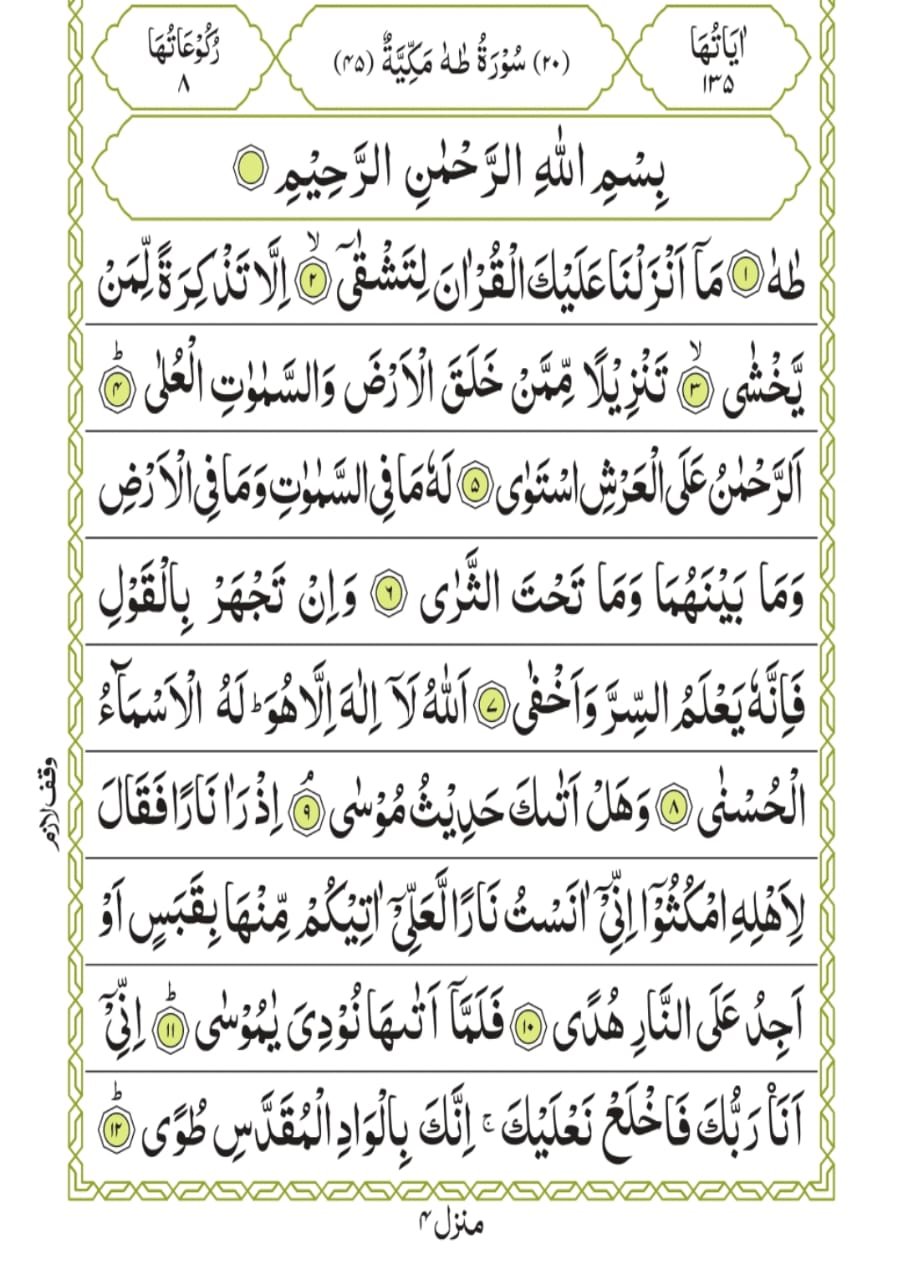 اٰيَاتُهَا ١٣٥
(٢٠) سُوْرَةُ طٰهٰ مَكِّيَّةٌ (٤٥)
رُكُوْعَاتُهَا ٨
بِسْمِ اللّٰهِ الرَّحْمٰنِ الرَّحِيْمِ
طٰهٰ ۝١ مَآ اَنْزَلْنَا عَلَيْكَ الْقُرْاٰنَ لِتَشْقٰٓى ۝٢ۙ اِلَّا تَذْكِرَةً لِّمَنْ
يَّخْشٰى ۝٣ۙ تَنْزِيْلًا مِّمَّنْ خَلَقَ الْاَرْضَ وَالسَّمٰوٰتِ الْعُلٰى ۝٤ؕ
اَلرَّحْمٰنُ عَلَى الْعَرْشِ اسْتَوٰى ۝٥ لَهٗ مَا فِى السَّمٰوٰتِ وَمَا فِى الْاَرْضِ
وَمَا بَيْنَهُمَا وَمَا تَحْتَ الثَّرٰى ۝٦ وَاِنْ تَجْهَرْ بِالْقَوْلِ
فَاِنَّهٗ يَعْلَمُ السِّرَّ وَاَخْفٰى ۝٧ اَللّٰهُ لَآ اِلٰهَ اِلَّا هُوَ ؕ لَهُ الْاَسْمَآءُ
الْحُسْنٰى ۝٨ وَهَلْ اَتٰىكَ حَدِيْثُ مُوْسٰى ۝٩ۘ اِذْ رَاٰ نَارًا فَقَالَ
وقف لازم
لِاَهْلِهِ امْكُثُوْٓا اِنِّىْٓ اٰنَسْتُ نَارًا لَّعَلِّىْٓ اٰتِيْكُمْ مِّنْهَا بِقَبَسٍ اَوْ
اَجِدُ عَلَى النَّارِ هُدًى ۝١٠ فَلَمَّآ اَتٰىهَا نُوْدِىَ يٰمُوْسٰى ۝١١ؕ اِنِّىْٓ
اَنَا۠ رَبُّكَ فَاخْلَعْ نَعْلَيْكَ ۚ اِنَّكَ بِالْوَادِ الْمُقَدَّسِ طُوًى ۝١٢ؕ
منزل ٤